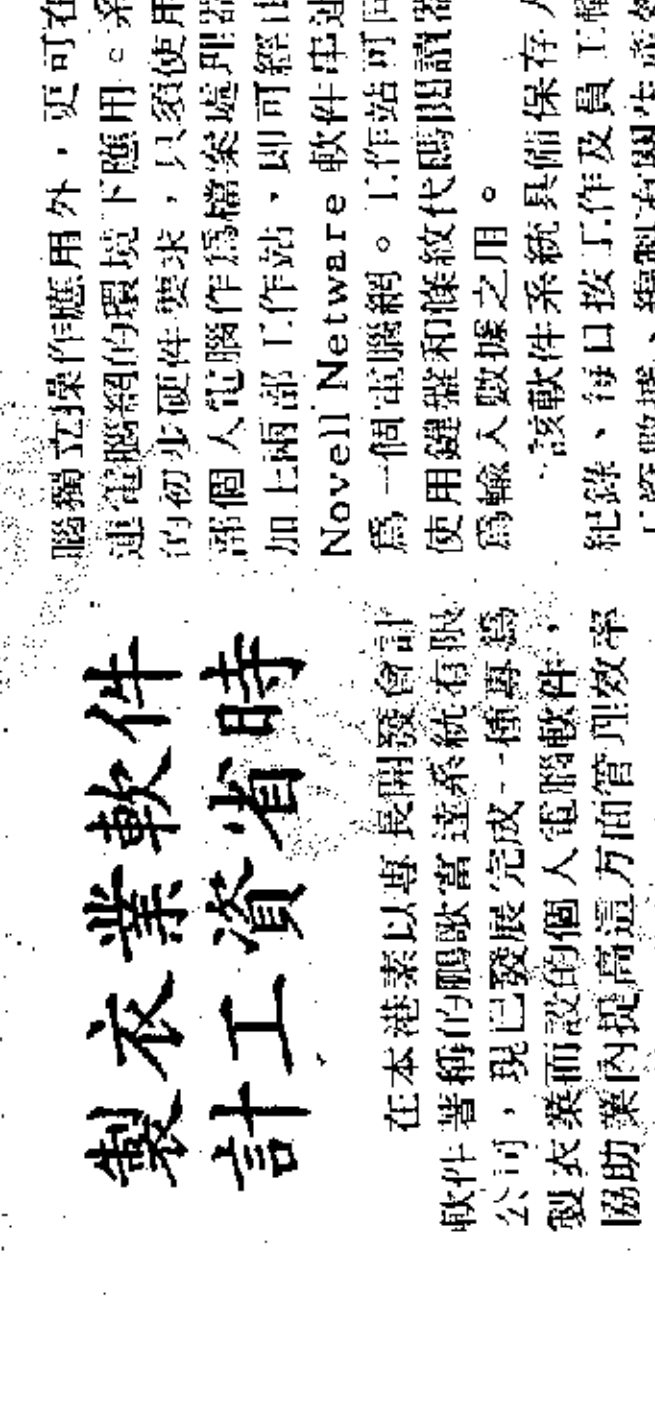 製衣業軟件
計工資省時
在本港素以專長開發會計
軟件著稱的系統有限
公司，現已發展完成一種專爲
製衣業而設的個人電腦軟件，
協助業內提高這方面管理效率
腦獨立操作應用外，更可在
連電腦網的環境下應用。系
的初步硬件要求，只須使用
部個人電腦作爲檔案處理器
加上兩部工作站，即可經由
Novell Netware 軟件串連
爲一個電腦網。工作站可同
使用鍵盤和條紋代碼閱讀器
爲輸入數據之用。
該軟件系統具備保存人
紀錄、每日按工作及員工
工資數據、編製有關生產